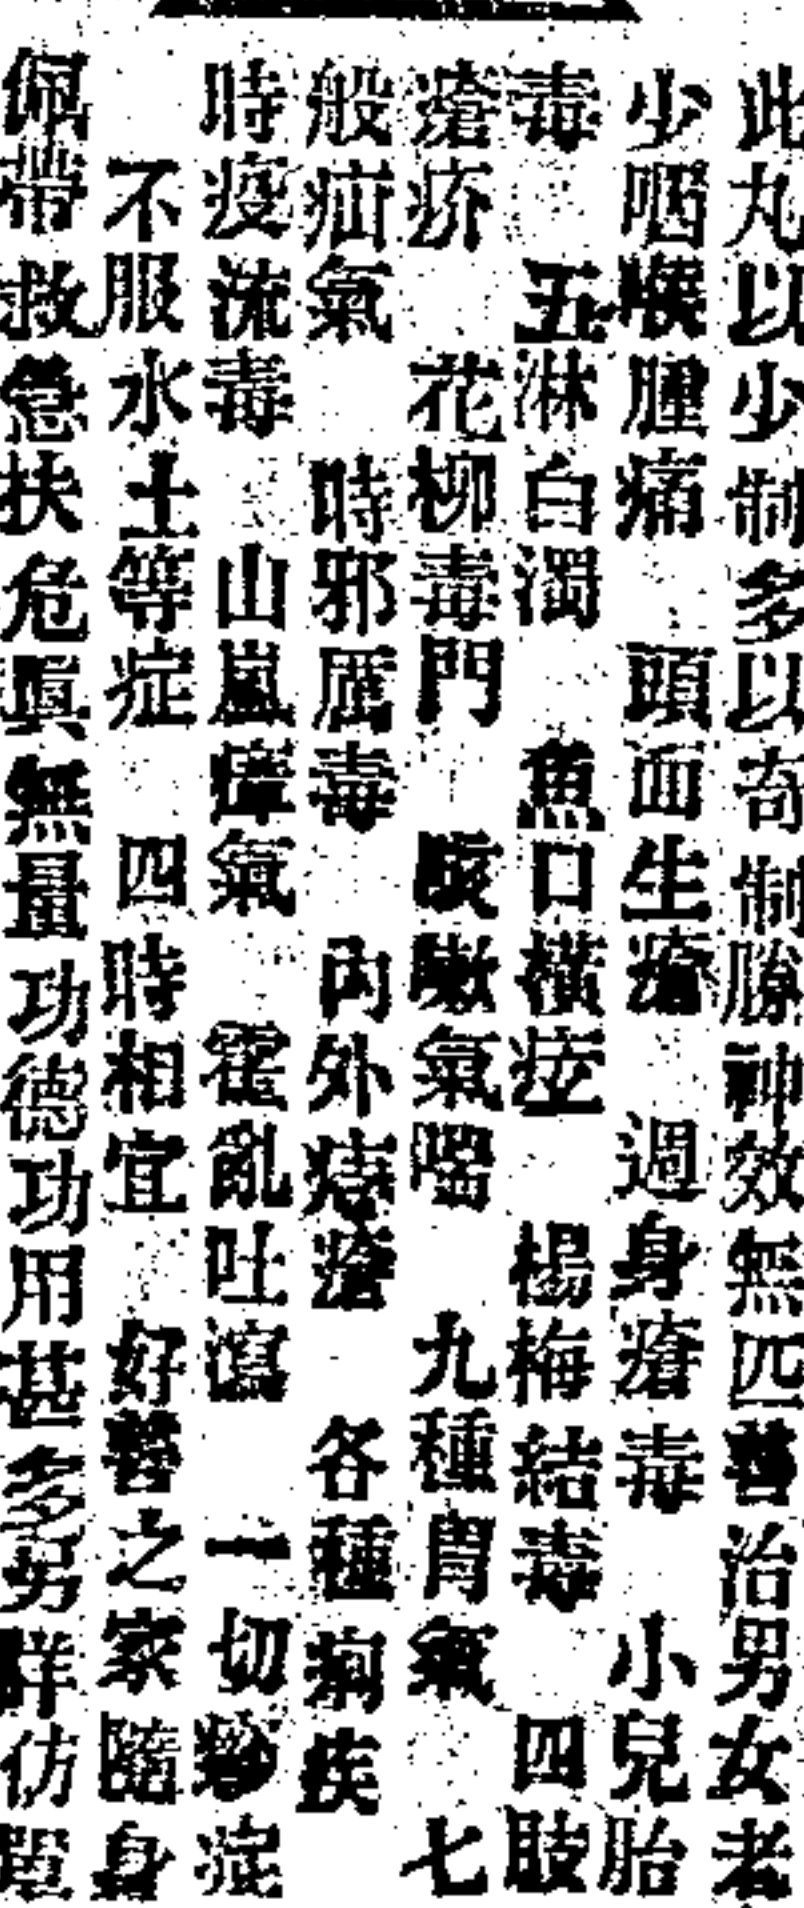 此丸以少制多以奇制勝神效無匹善治男女老
少咽喉腫痛　頭面生瘡　週身瘡毒　小兒胎
毒　五淋白濁　魚口橫痃　楊梅結毒　四肢
瘡疥　花柳毒門　咳嗽氣喘　九種胃氣　七
般疝氣　時邪厲毒　內外痔瘡　各種痢疾
時疫流毒　山嵐瘴氣　霍亂吐瀉　一切痧症
不服水土等症　四時相宜　好善之家隨身
佩帶救急扶危眞無量功德功用甚多另詳仿單